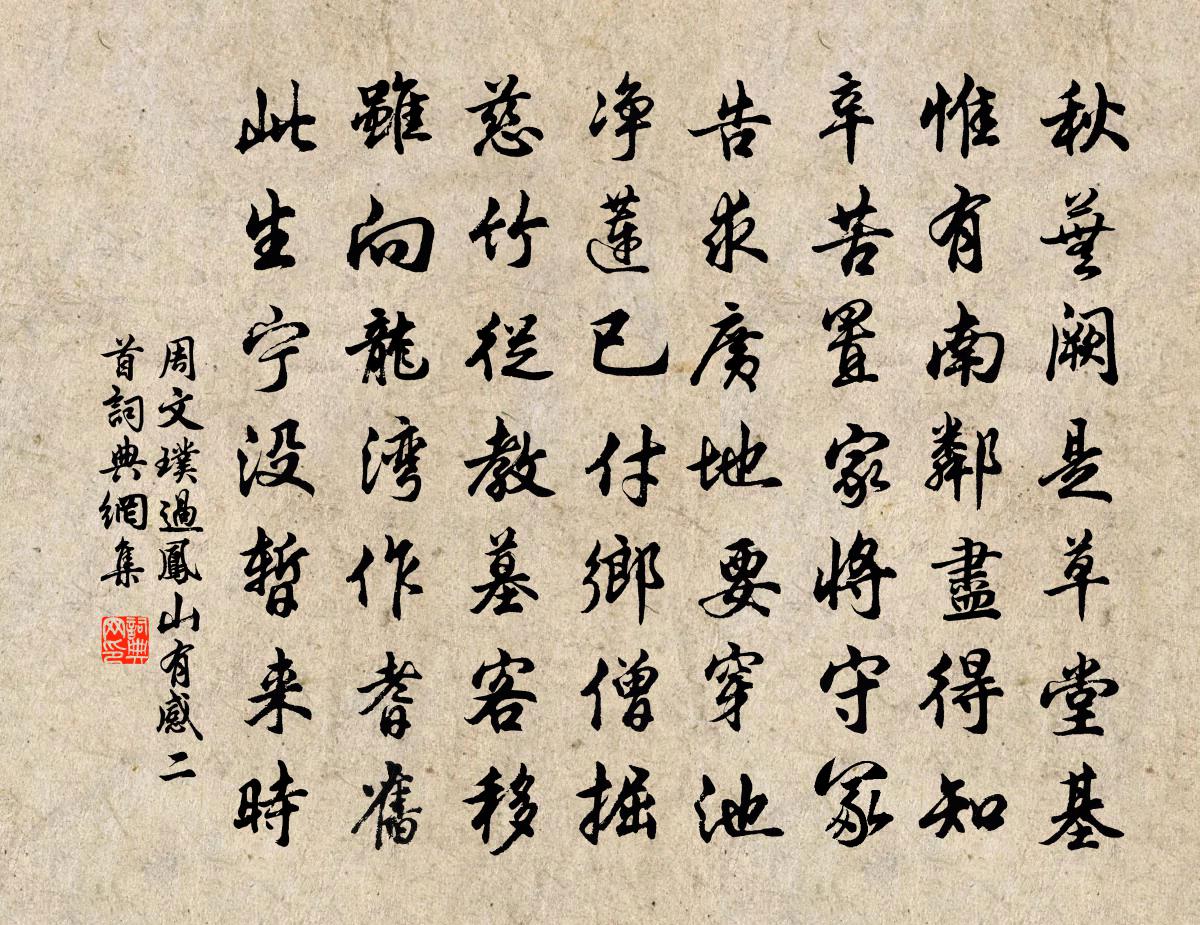 秋芜阙是草堂基
惟有南鄰盡得知
辛苦置家將守冢
告求廣地要穿池
净蓮已付鄉僧掘
慈竹從教墓客移
雖向龍湾作耆舊
此生宁没暂来時
周文璞過鳳山有感二
首詞典網集
詞典
网印